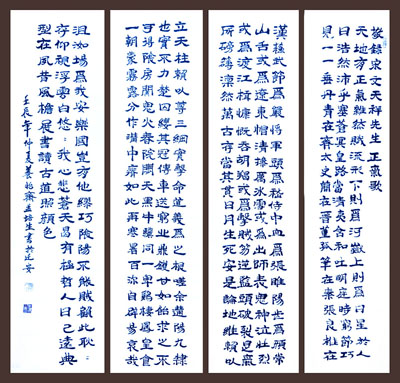 敬錄宋文天祥先生正氣歌
天地有正氣雜然賦流形下則爲河嶽上則爲日星於人
曰浩然沛乎塞蒼冥皇路當清夷含和吐明庭時窮節乃
見一一垂丹青在齊太史簡在晉董狐筆在秦張良椎在
漢蘇武節爲嚴將軍頭爲嵇侍中血爲張睢陽齒爲顏常
山舌或爲遼東帽清操厲冰雪或爲出師表鬼神泣壯烈
或爲渡江楫慷慨吞胡羯或爲擊賊笏逆豎頭破裂是氣
所磅礴凜然萬古存當其貫日月生死安足論地維賴以
立天柱賴以尊三綱實繫命道義爲之根嗟余遘陽九隸
也實不力楚囚纓其冠傳車送窮北鼎鑊甘如飴求之不
可得陰房闃鬼火春院閟天黑牛驥同一皁雞棲鳳凰食
一朝蒙霧露分作溝中瘠如此再寒暑百沴自辟易哀哉
沮洳場爲我安樂國豈有他繆巧陰陽不能賊顧此耿々
存仰視浮雲白悠々我心悲蒼天曷有極哲人日已遠典
型在夙昔風檐展書讀古道照顏色
壬辰年仲夏 齋 培生書於延安